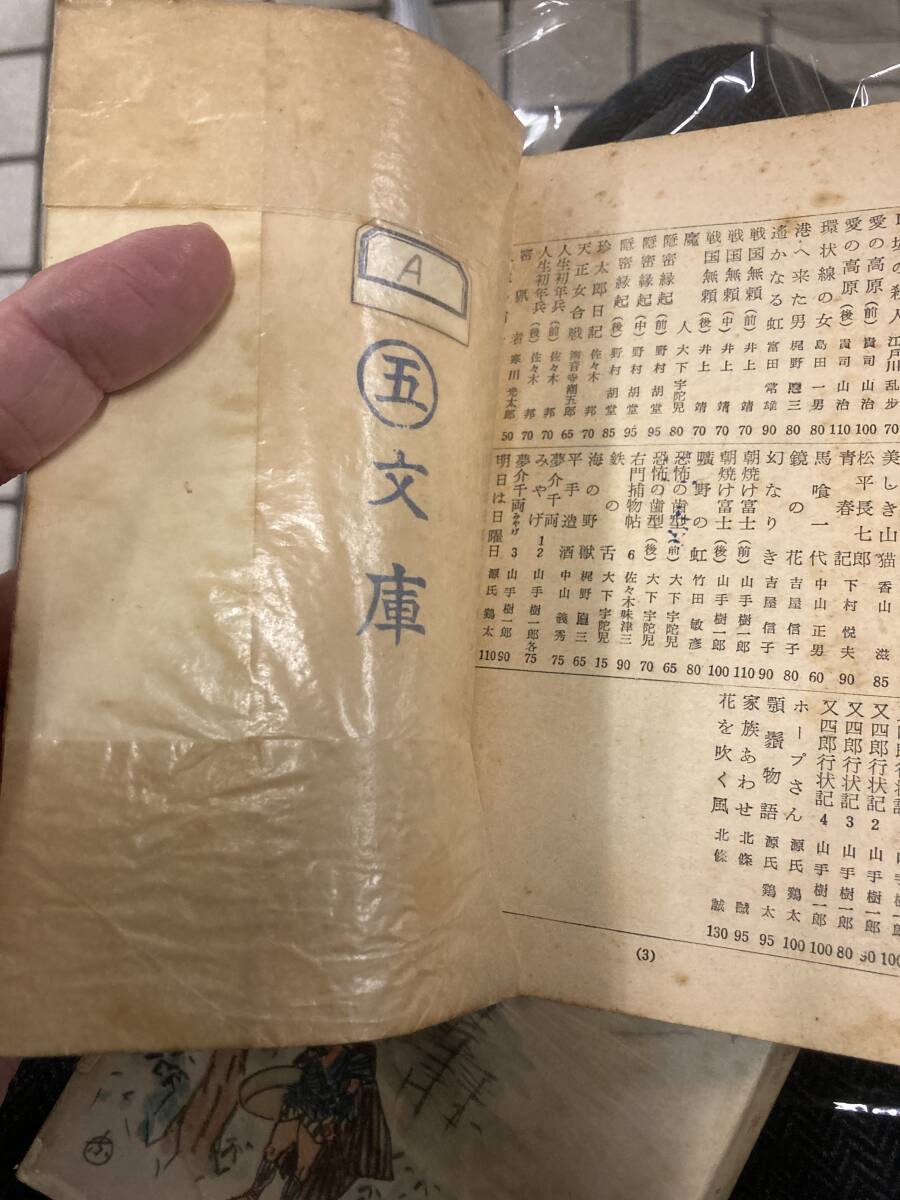 A
五
文庫
江戸川乱歩 70
愛の高原（前） 貴司山治 100
愛の高原（後） 貴司山治 110
環状線の女 島田一男 80
港へ来た男 梶野悳三 80
遙かなる虹 富田常雄 90
戦国無頼（前） 井上靖 70
戦国無頼（中） 井上靖 70
戦国無頼（後） 井上靖 70
魔人 大下宇陀児 80
隠密縁起（前） 野村胡堂 95
隠密縁起（中） 野村胡堂 95
隠密縁起（後） 野村胡堂 85
珍太郎日記 佐々木邦 70
天正女合戦 海音寺潮五郎 65
人生初年兵（前） 佐々木邦 70
人生初年兵（後） 佐々木邦 70
密猟者 寒川光太郎 50
美しき山猫 香山滋 85
松平長七郎
青春記 下村悦夫 90
馬喰一代 中山正男 60
鏡の花 吉屋信子 80
幻なりき 吉屋信子 90
朝焼け富士（前） 山手樹一郎 110
朝焼け富士（後） 山手樹一郎 100
曠野の虹 竹田敏彦 80
恐怖の歯型（前） 大下宇陀児 65
恐怖の歯型（後） 大下宇陀児 70
右門捕物帖 6 佐々木味津三 90
鉄の舌 大下宇陀児 15
海の野獣 梶野悳三 65
平手造酒 中山義秀 75
夢介千両
みやげ 1 2 山手樹一郎 各75
夢介千両みやげ 3 山手樹一郎 90
明日は日曜日 源氏鶏太 110
又四郎行状記 2 山手樹一郎 90
又四郎行状記 3 山手樹一郎 80
又四郎行状記 4 山手樹一郎 100
ホープさん 源氏鶏太 100
顎鬚物語 源氏鶏太 95
家族あわせ 北條誠 95
花を吹く風 北條誠 130
(3)